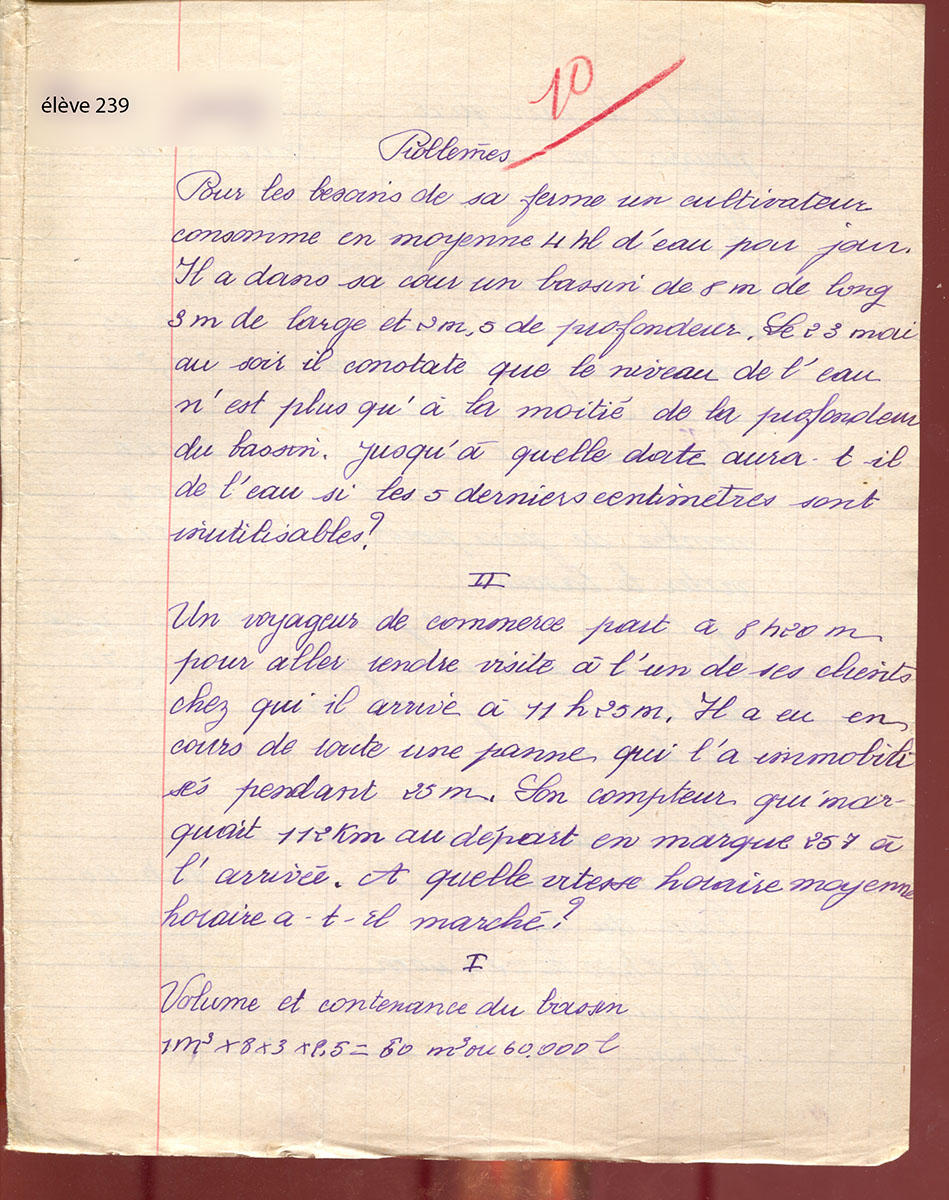 élève 239
10
Problèmes
Pour les besoins de sa ferme un cultivateur
consomme en moyenne 4 hl d'eau par jour.
Il a dans sa cour un bassin de 8 m de long
3 m de large et 2 m, 5 de profondeur. Le 23 mai
au soir il constate que le niveau de l'eau
n'est plus qu'à la moitié de la profondeur
du bassin. Jusqu'à quelle date aura-t-il
de l'eau si les 5 derniers centimètres sont
inutilisables?
II
Un voyageur de commerce part à 8 h 20 m
pour aller rendre visite à l'un de ses clients
chez qui il arrive à 11 h 25 m. Il a eu en
cours de route une panne qui l'a immobili
sés pendant 25 m. Son compteur qui mar-
quait 112 Km au départ en marque 257 à
l'arrivée. A quelle vitesse horaire moyenne
horaire a-t-il marché?
I
Volume et contenance du bassin
1m³ x 8 x 3 x 2,5 = 60 m³ ou 60.000 l